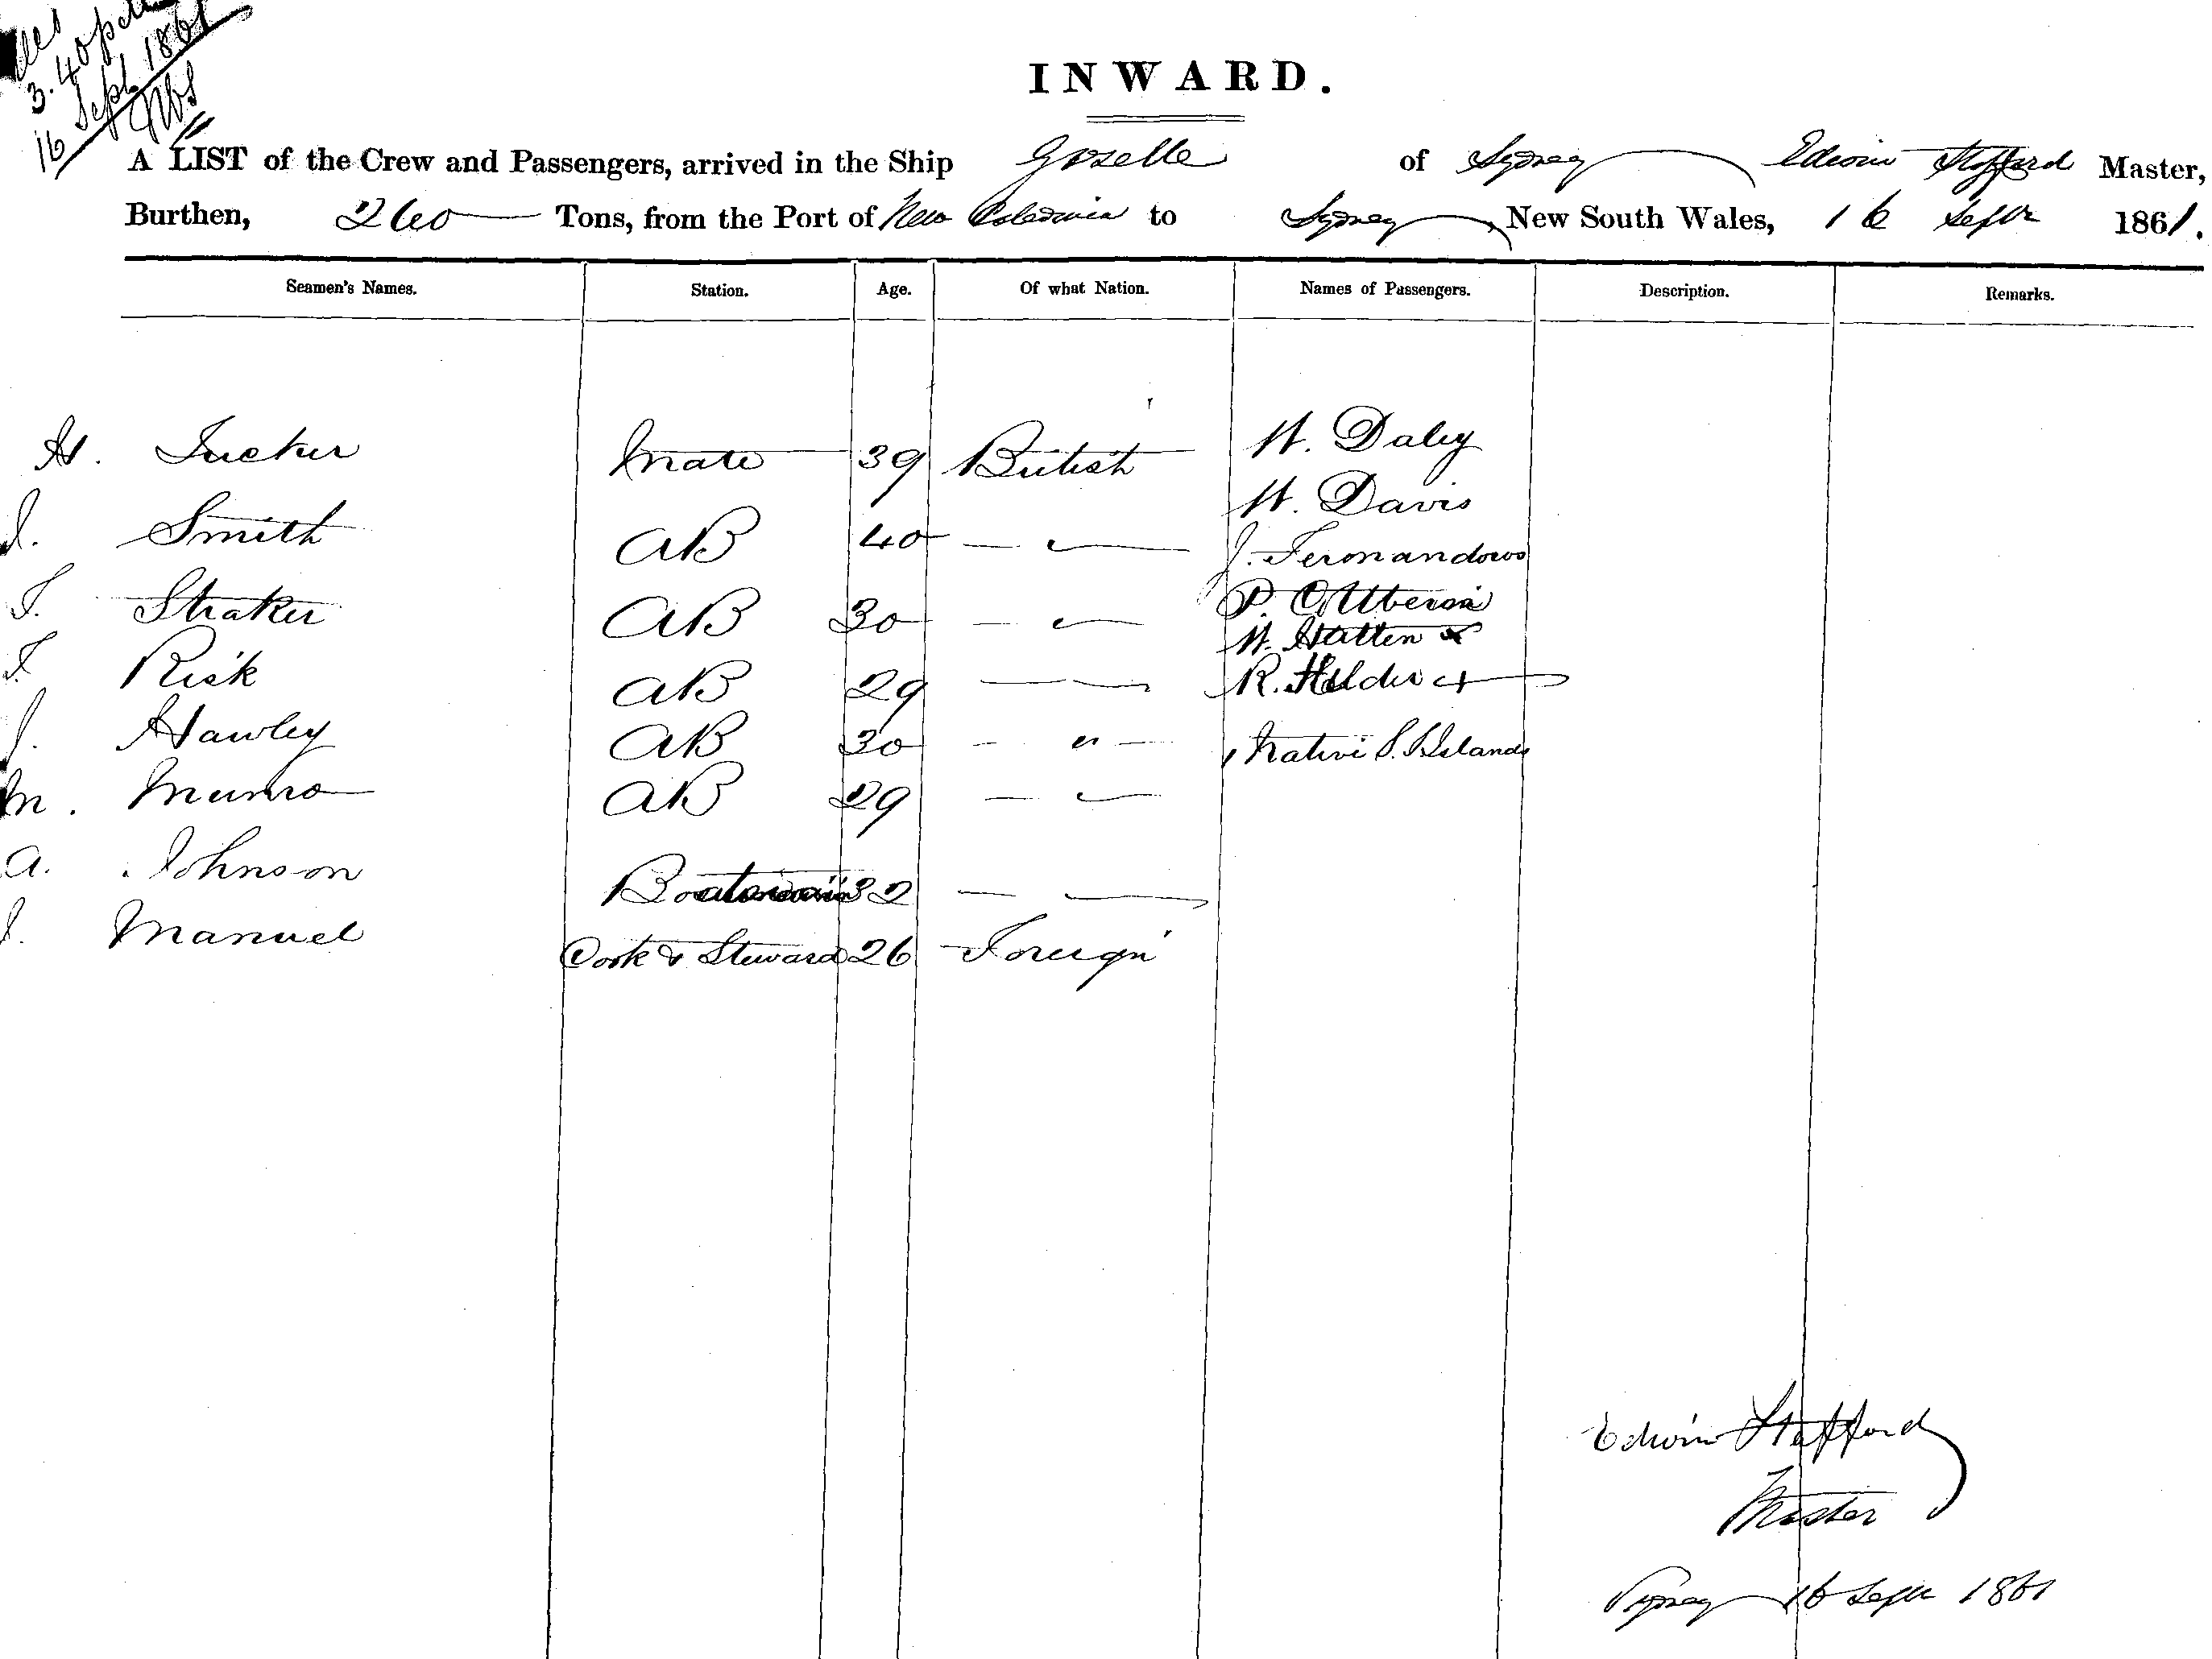 3.40 pm
16 Sept. 1861
INWARD.
A LIST of the Crew and Passengers, arrived in the Ship Gazelle of Sydney Edwin Stafford Master,
Burthen, 260 Tons, from the Port of New Caledonia to Sydney, New South Wales, 16 Septr 1861.
Seamen's Names. Station. Age. Of what Nation. Names of Passengers. Description. Remarks.
H. Tucker Mate 39 British W. Daley
W. Davis
J. Smith AB 40 — " — J. Fernandows
T. Straker AB 30 — " — P.
W. Hatten
T. Risk AB 29 — — R. Helder
J. Hawley AB 30 — " — 1 Native S. S. Islands
M. Munro AB 29 — " —
A. Johnson Boatswain 32 — —
J. Manuel Cook & Steward 26 Foreign
Edwin Stafford
Master
Sydney 16 Septr 1861